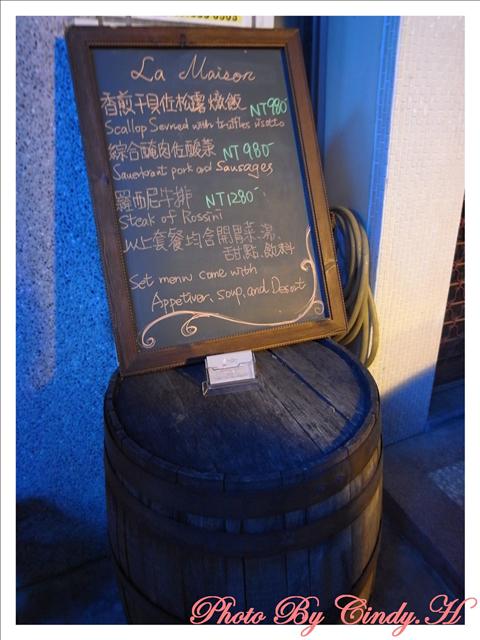 La Maison
香煎干貝佐松露燉飯 NT980
Scallop Served with truffles risotto
綜合醃肉佐酸菜 NT980
Sauerkraut pork and Sausages
羅西尼牛排 NT1280
Steak of Rossini
以上套餐均含開胃菜、湯、
甜點、飲料
Set menu come with
Appetiver, soup, and Desert
Photo By Cindy.H